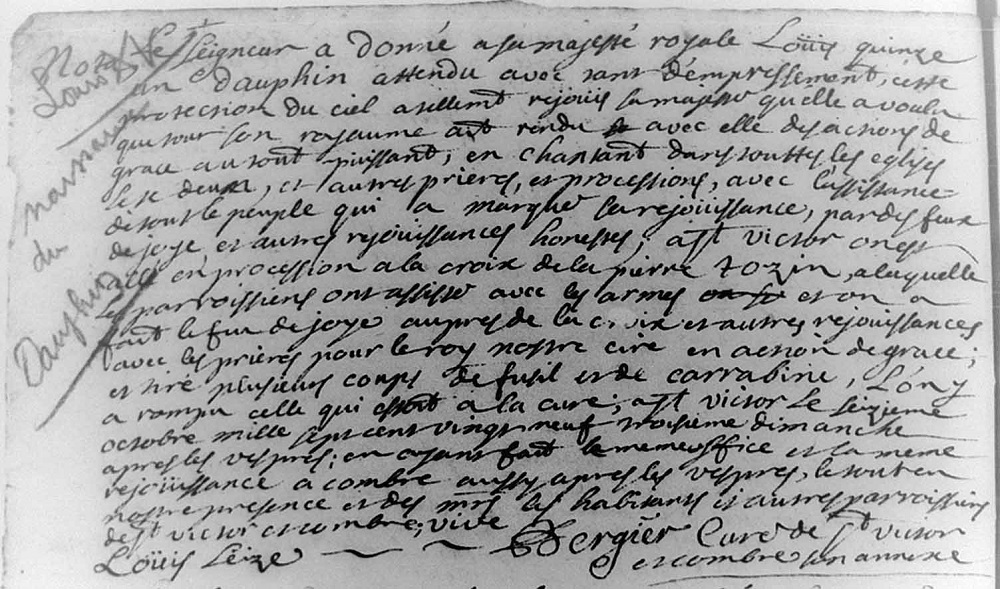 Nota Le Seigneur a donné a sa majesté royale Loüis quinze
un dauphin attendu avec tant d'empressement, cette
protection du ciel a tellemt rejoüis sa majesté qu'elle a voulu
que tout son royaume aît rendu avec elle des actions de
grace au tout puissant, en chantant dans touttes les eglises
le te deum, et autres prieres, et processions, avec l'assistance
de tout le peuple qui a marqué sa rejoüissance, par des feux
de joye et autres rejoüissances honestes; a St victor on est
allé en procession a la croix de la pierre tozin, a laquelle
les parroissiens ont assisté avec les armes et on a
fait le feu de joye aupres de la croix et autres rejoüissances
avec les prieres pour le roy nostre cire en action de grace;
et tiré plusieurs coups de fusil et de carrabine, L'on y
a rompu celle qui estoit a la cure; a St victor le seizieme
octobre mille sept cent vingt neuf troisieme dimanche
apres les vespres; en ayant fait le meme office et la meme
rejoüissance a combre aussy apres les vespres, le tout en
nostre presence et des mrs les habitants et autres parroissiens
de St victor et combre; vive
Loüis seize Dergier Curé de St victor
et combre son annexe
Louis XV
naissance
du
Dauphin